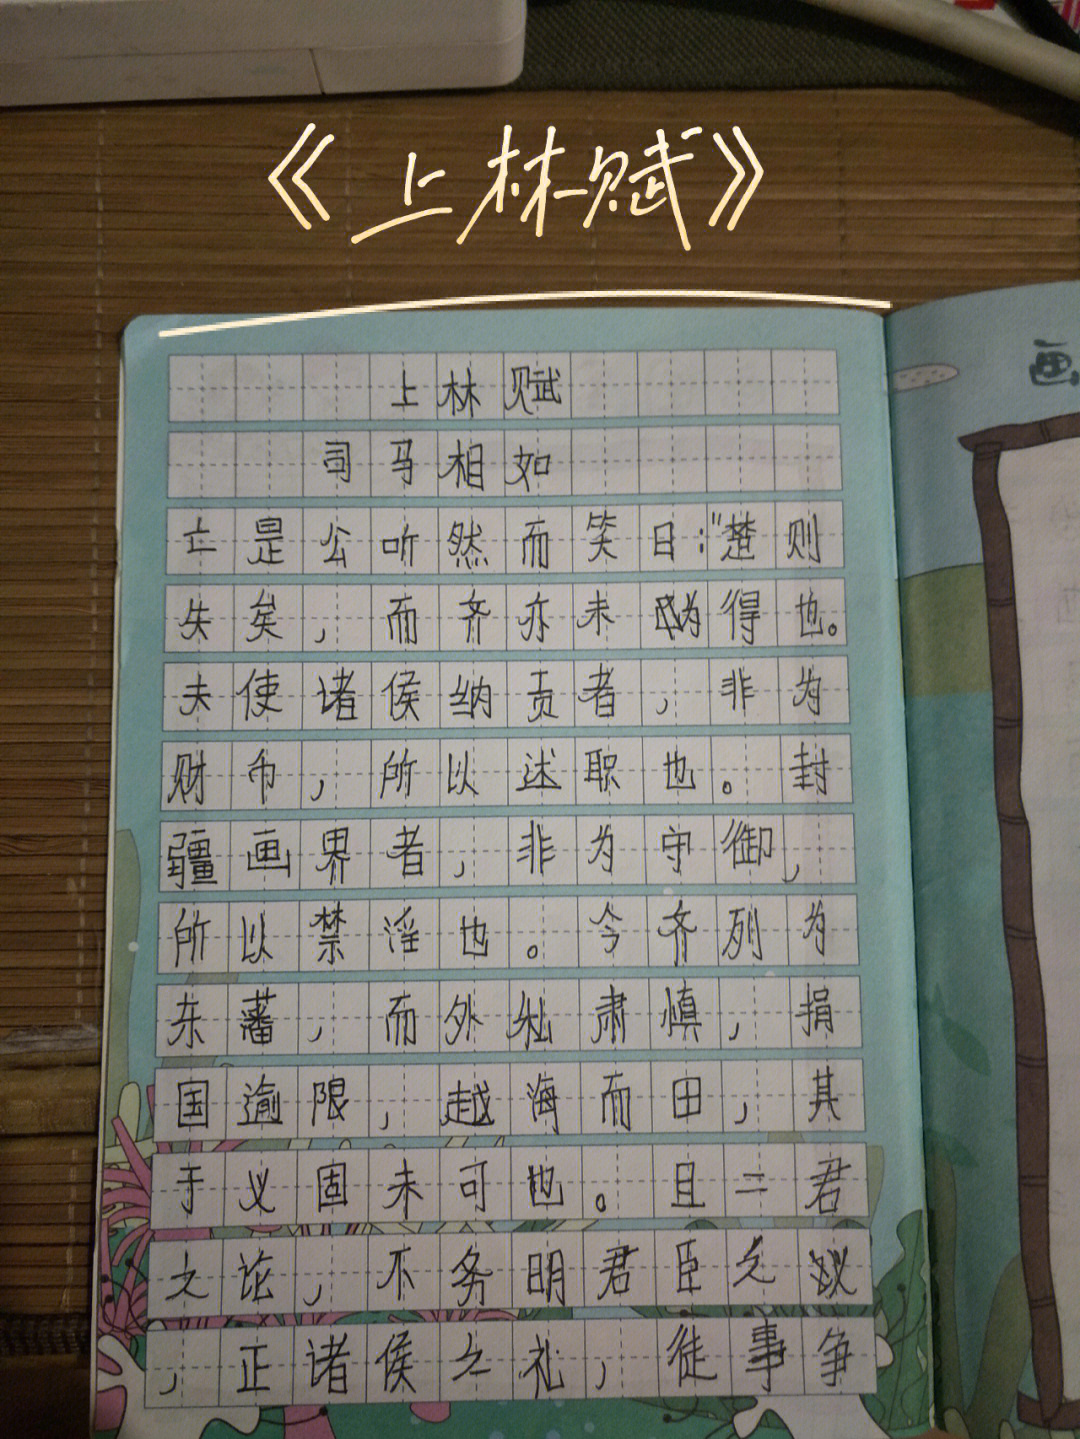 《上林赋》
画
上林赋
司马相如
亡是公听然而笑曰:"楚则
失矣,而齐亦未为得也。
夫使诸侯纳贡者,非为
财币,所以述职也。封
疆画界者,非为守御,
所以禁淫也。今齐列为
东蕃,而外私肃慎,捐
国逾限,越海而田,其
于义固未可也。且二君
之论,不务明君臣之义
,正诸侯之礼,徒事争